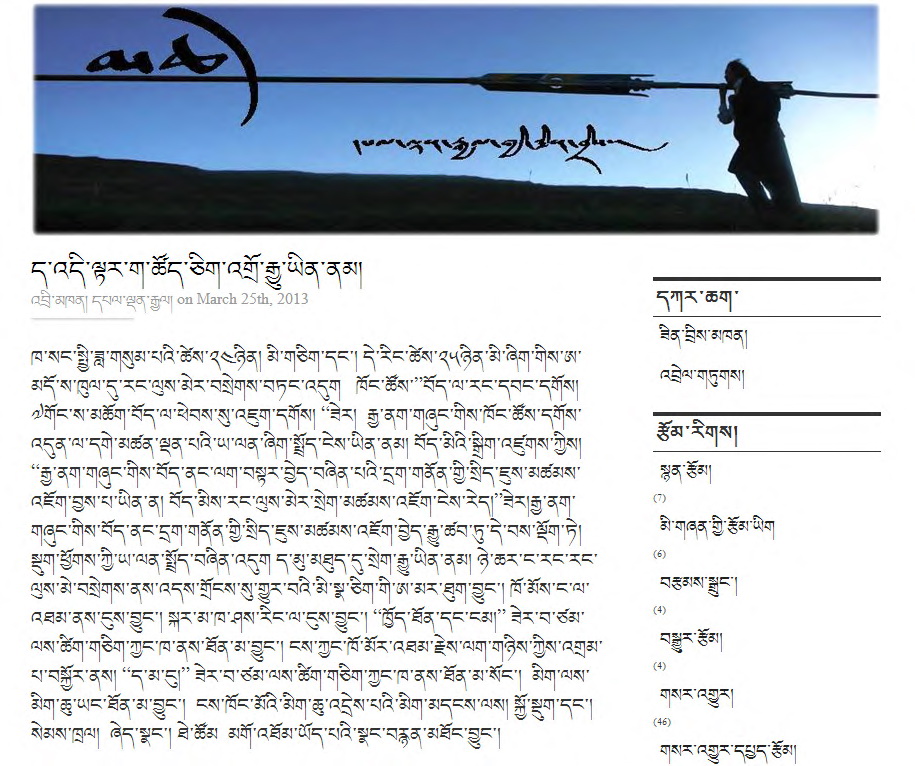 ད་འདི་ལྟར་ག་ཚོད་ཅིག་འགྲོ་རྒྱུ་ཡིན་ནམ།
འབྲི་མཁན། དཔལ་ལྡན་རྒྱལ། on March 25th, 2013
ཁ་སང་སྤྱི་ཟླ་གསུམ་པའི་ཚེས་༢༤ཉིན། མི་གཅིག་དང་། དེ་རིང་ཚེས་༢༥ཉིན་མི་ཞིག་གིས་ཨ་
མདོ་ས་ཁུལ་དུ་རང་ལུས་མེར་བསྲེགས་བཏང་འདུག ཁོང་ཚོས་”བོད་ལ་རང་དབང་དགོས།
༧གོང་ས་མཆོག་བོད་ལ་ཕེབས་སུ་འཇུག་དགོས། “ཟེར། རྒྱ་ནག་གཞུང་གིས་ཁོང་ཚོས་དགོས་
འདུན་ལ་དགེ་མཚན་ལྡན་པའི་ཡ་ལན་ཞིག་སྤྲོད་ངེས་ཡིན་ནམ། བོད་མིའི་སྒྲིག་འཛུགས་ཀྱིས།
“རྒྱ་ནག་གཞུང་གིས་བོད་ནང་ལག་བསྟར་བྱེད་བཞིན་པའི་དྲག་གནོན་གྱི་སྲིད་ཇུས་མཚམས་
འཇོག་བྱས་པ་ཡིན་ན། བོད་མིས་རང་ལུས་མེར་སྲེག་མཚམས་འཇོག་ངེས་རེད།”ཟེར།རྒྱ་ནག་
གཞུང་གིས་བོད་ནང་དྲག་གནོན་གྱི་སྲིད་ཇུས་མཚམས་འཇོག་བྱེད་རྒྱུ་ཚབ་ཏུ་དེ་བས་ལྡོག་ཏེ།
སྡུག་ཕྱོགས་ཀྱི་ཡ་ལན་སྤྲོད་བཞིན་འདུག ད་མུ་མཐུད་དུ་སྲེག་རྒྱུ་ཡིན་ནམ། ཉེ་ཆར་ང་རང་རང་
ལུས་མེ་བསྲེགས་ནས་འདས་གྲོངས་སུ་གྱུར་བའི་མི་སྣ་ཅིག་གི་ཨ་མར་ཐུག་བྱུང་། ཁོ་མོས་ང་ལ་
འཐམ་ནས་ངུས་བྱུང་། སྐར་མ་ཁ་ཤས་རིང་ལ་ངུས་བྱུང་། “ཁྱོད་ཐོན་དང་ངམ།” ཟེར་བ་ཙམ་
ལས་ཚིག་གཅིག་ཀྱང་ཁ་ནས་ཐོན་མ་བྱུང་། ངས་ཀྱང་ཁོ་མོར་འཐམ་རྗེས་ལག་གཉིས་ཀྱིས་འགྲམ་
པ་བསྐྱོར་ནས། “ད་མ་ངུ།” ཟེར་བ་ཙམ་ལས་ཚིག་གཅིག་ཀྱང་ཁ་ནས་ཐོན་མ་སོང་། མིག་ལས་
མིག་ཆུ་ཡང་ཐོན་མ་བྱུང་། ངས་ཁོང་མོའི་མིག་ཆུ་འདྲེས་པའི་མིག་མདངས་ལས། སྐྱོ་སྡུག་དང་།
སེམས་ཁྲལ། ཞེད་སྣང་། ཐེ་ཚོམ མགོ་འཐོམ་ཡོད་པའི་སྣང་བརྙན་མཐོང་བྱུང་།
དཀར་ཆག་
ཟིན་བྲིས་མཁན།
འབྲེལ་གཏུགས།
རྩོམ་རིགས།
སྙན་རྩོམ།
(7)
མི་གཞན་གྱི་རྩོམ་ཡིག
(6)
བརྩམས་སྒྲུང་།
(4)
བསྒྱུར་རྩོམ།
(4)
གསར་འགྱུར།
(46)
གསར་འགྱུར་དཔྱད་རྩོམ།